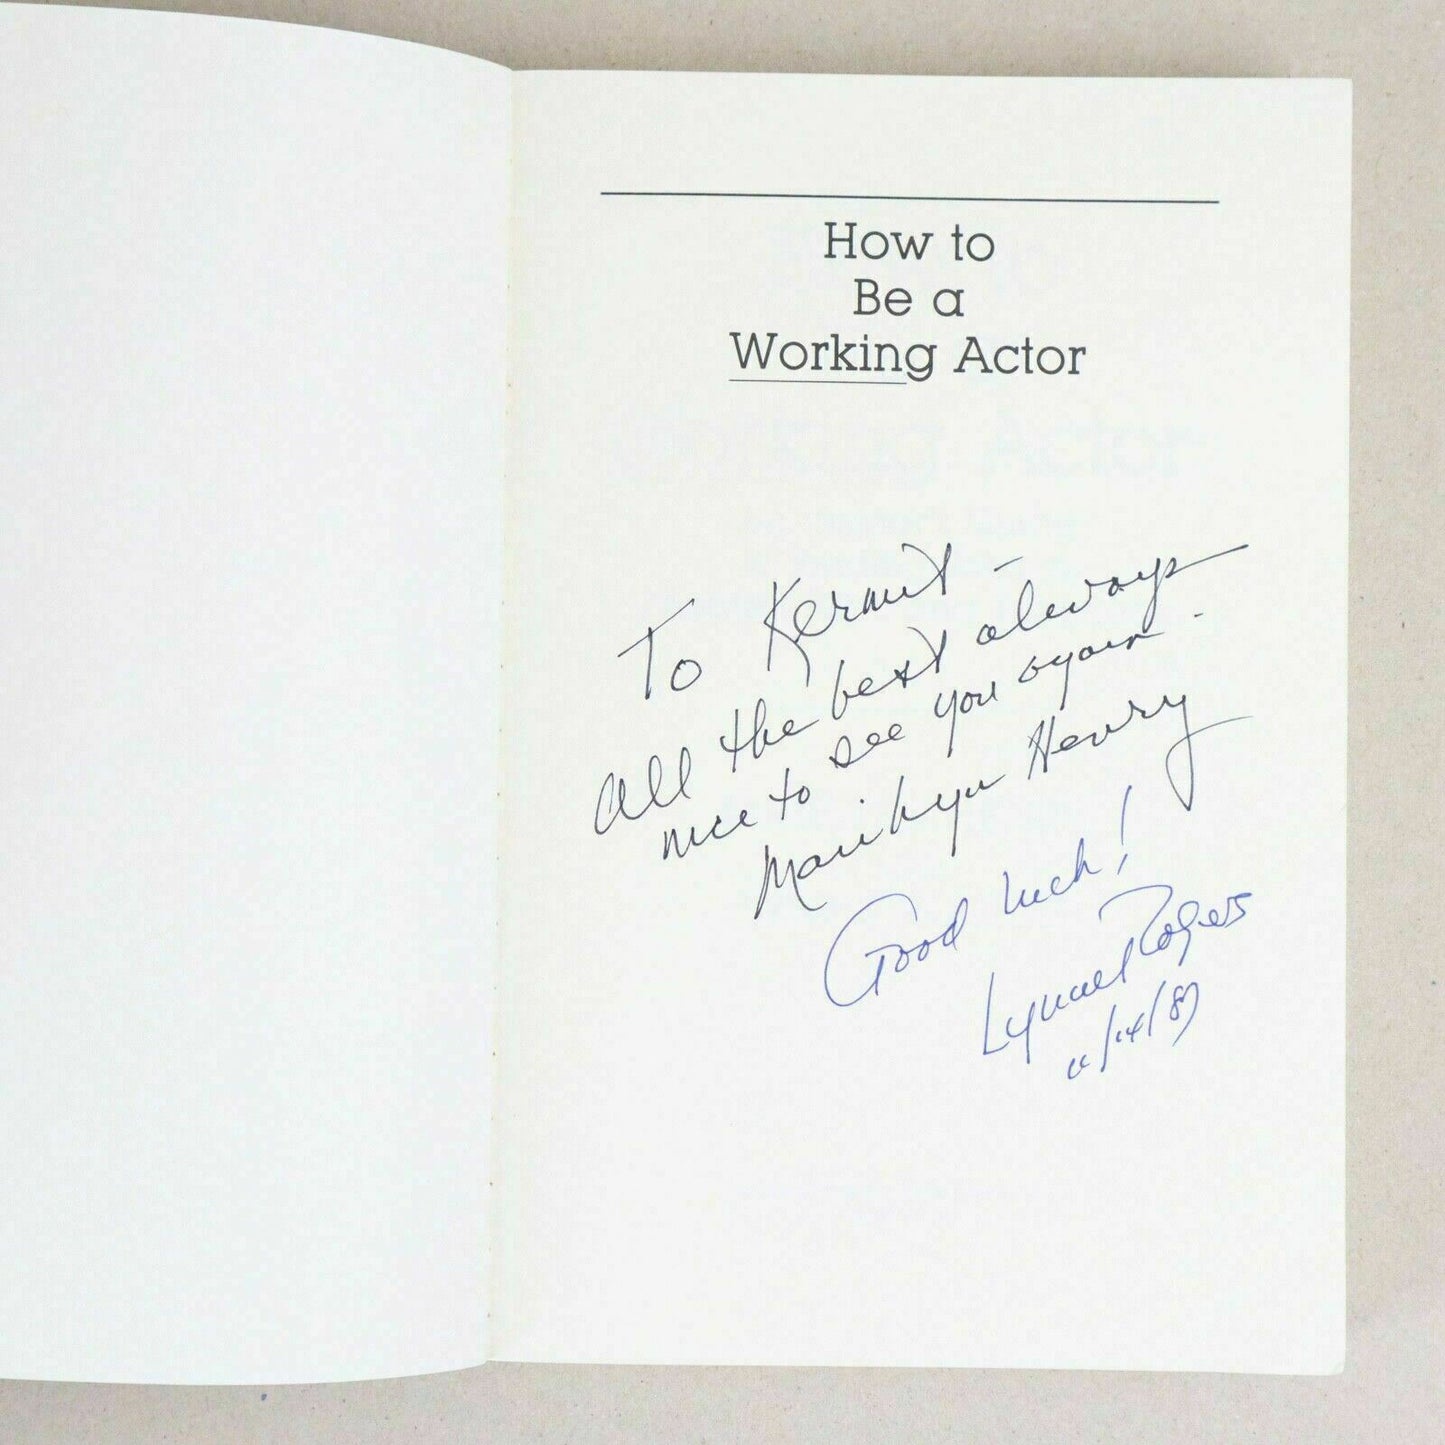 How to
Be a
Working Actor
To Kermit -
All the best always
nice to see you again -
Mari Lyn Henry
Good luck!
Lynne Rogers
11/14/87